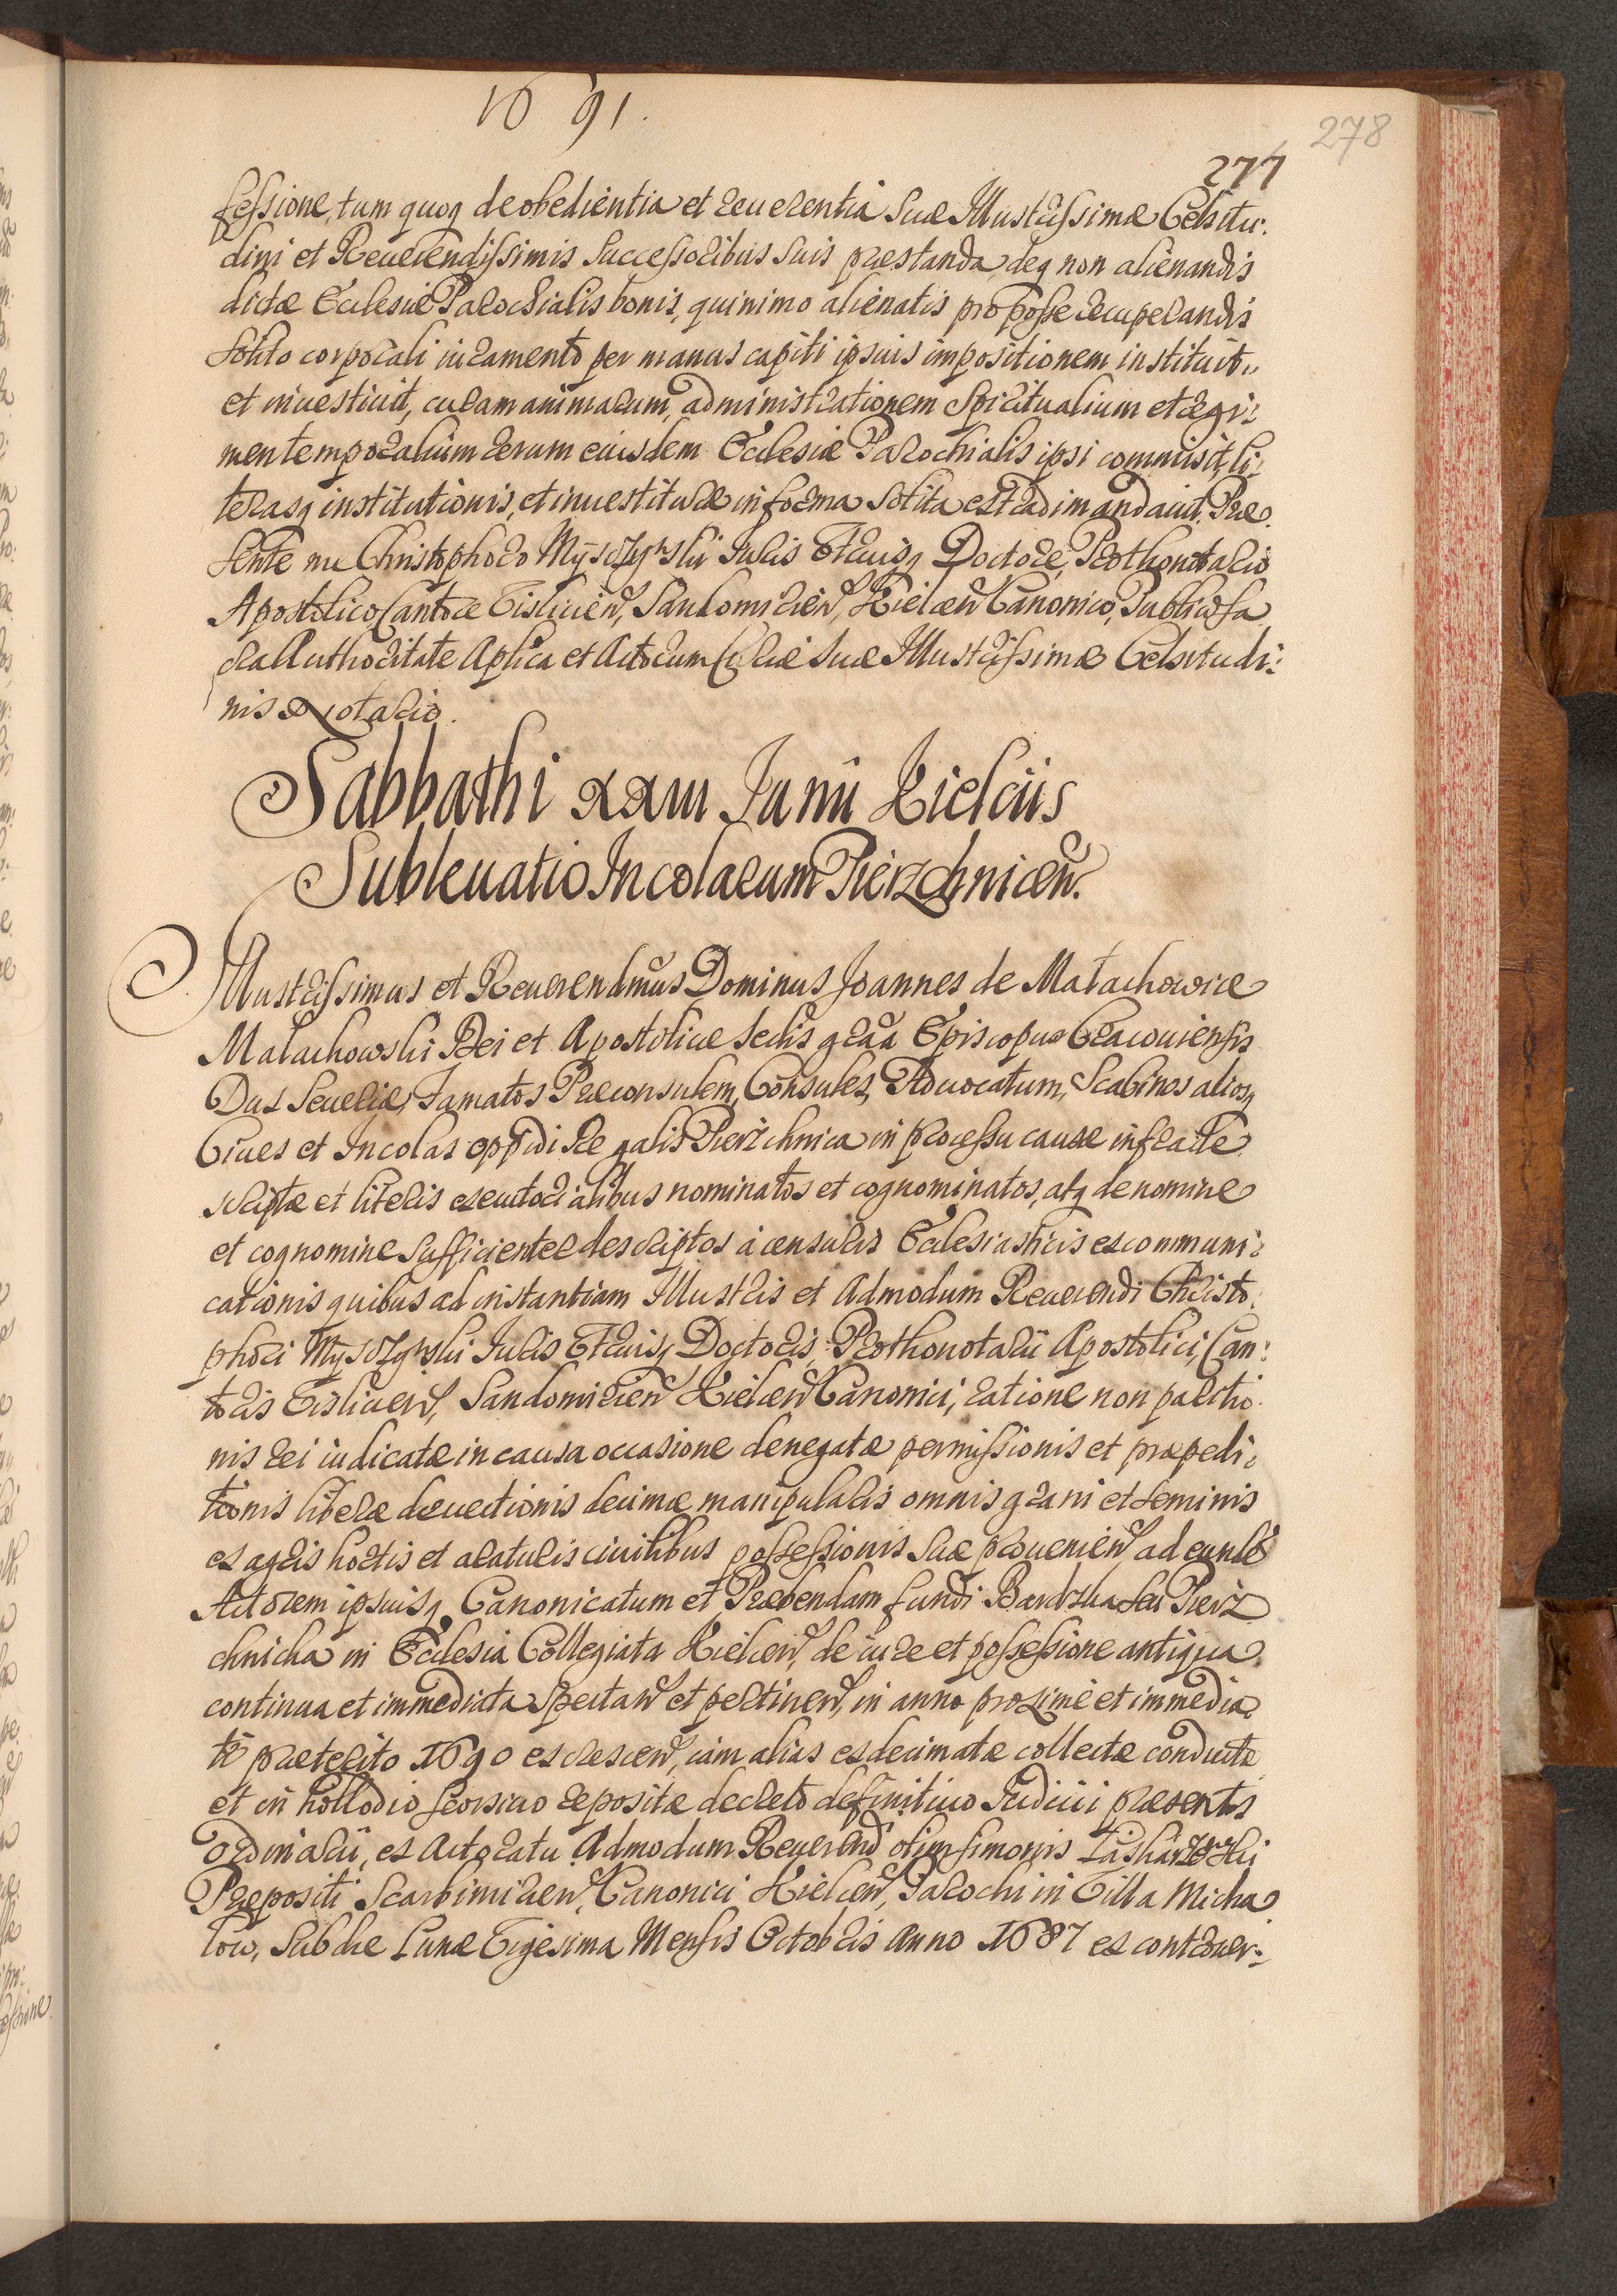 1691.
278
277
fessione, tum quoq de obedientia et reuerentia Suæ Illustrissimæ Celsitu:
dini et Reuerendissimis Successoribus Suis præstanda, deq non alienandis
dictæ Ecclesiæ Parochialis bonis, quinimo alienatis pro posse recuperandis
Solito corporali iuramento per manus capiti ipsius impositionem instituit,
et inuestiuit, curam animarum, administrationem Spiritualium et regi:
men temporalium rerum eiusdem Ecclesiæ Parochialis ipsi commisit, li:
terasq institutionis, et inuestituræ in forma Solita extradi mandauit. Præ
sente me Christophoro Myszczyński Iuris Vtriusq Doctore, Prothonotario
Apostolico Cantore Visliciên, Sandomiriên, Kielcên Canonico, Publico Sa
cra Authoritate Aplica et Actorum Curiæ Suæ Illustrissimæ Celsitudi:
nis Notario.
Sabbathi xxiii Junii Kielciis
Subleuatio Incolarum Pierzchnicên.
Illustrissimus et Reuerendmus Dominus Joannes de Małachowice
Małachowski Dei et Apostolicæ Sedis gratia Episcopus Cracouiensis
Dux Seueriæ, Famatos Præconsulem, Consules, Aduocatum, Scabinos aliosq
Ciues et Incolas oppidi Regalis Pierzchnica in processu causæ infra de
scriptæ et literis executorialibus nominatos et cognominatos, atq de nomine
et cognomine Sufficienter descriptos à censuris Ecclesiasticis excommuni:
cationis quibus ad instantiam Illustris et Admodum Reuerendi Christo
phori Myszczyński Iuris Vtriusq Doctoris, Prothonotarii Apostolici, Can:
toris Visliciên, Sandomiriên Kielcên Canonici, ratione non paritio
nis rei iudicatæ in causa occasione denegatæ permissionis et præpedi:
tionis liberæ deuectionis decimæ manipularis omnis grani et seminis
ex agris hortis et araturis ciuilibus possessionis Suæ prouenien ad eund
Actorem ipsiusq Canonicatum et Præbendam fundi Bardzka seu Pierz
chnicka in Ecclesia Collegiata Kielcên, de iure et possessione antiqua
continua et immediata Spectan et pertinen, in anno proxime et immedia
tè præterito 1690 excrescen, iam alias exdecimatæ collectæ conductæ
et in hollodio seorsiuo repositæ decreto definitiuo Iudicii præsentis
ordinarii, ex Actoratu Admodum Reuerend olim Simonis
Præpositi Scarbimirien, Canonici Kielcên, Parochi in Villa Micha
low, Sub die Lunæ Vigesima Mensis Octobris Anno 1687 ex controuer: